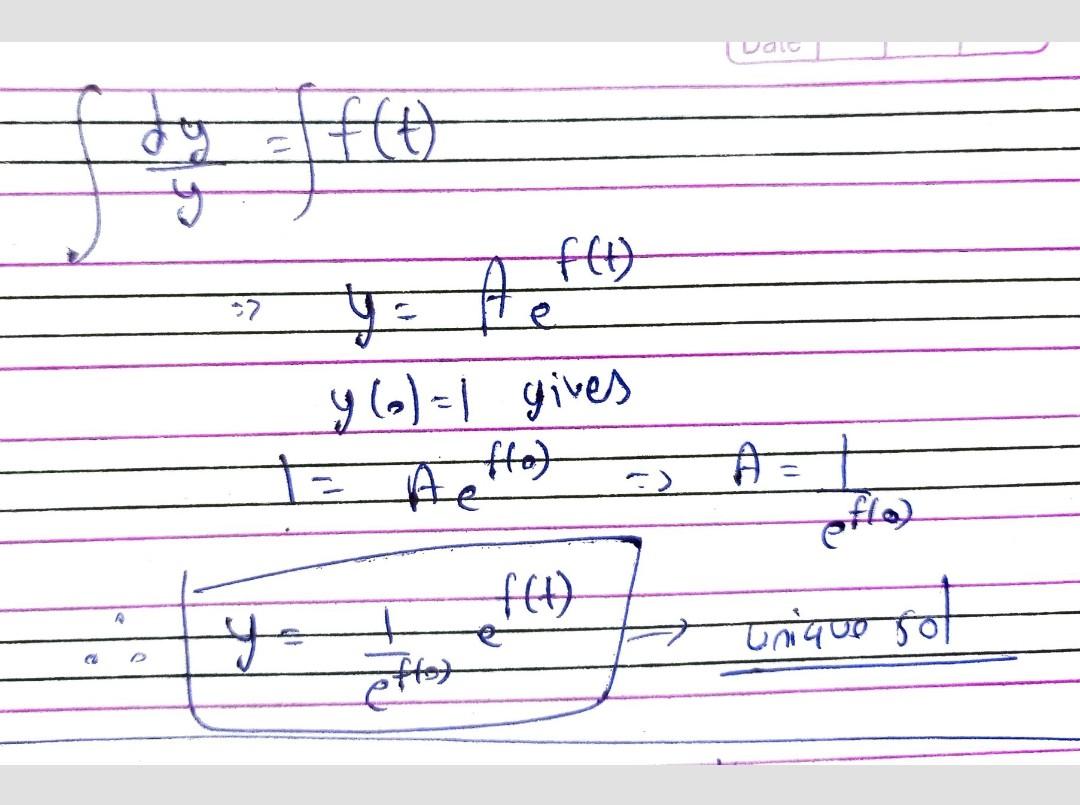 Date
∫ dy/y = ∫ f(t)
=> y = A e^f(t)
y(0)=1 gives
1 = A e^f(0) => A = 1/e^f(0)
∴ y = 1/e^f(0) e^f(t) → unique sol